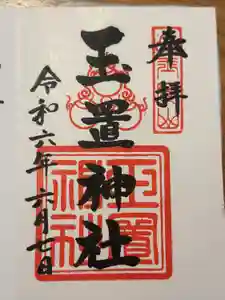 奉拝
玉置神社
令和六年六月七日
玉置
神社